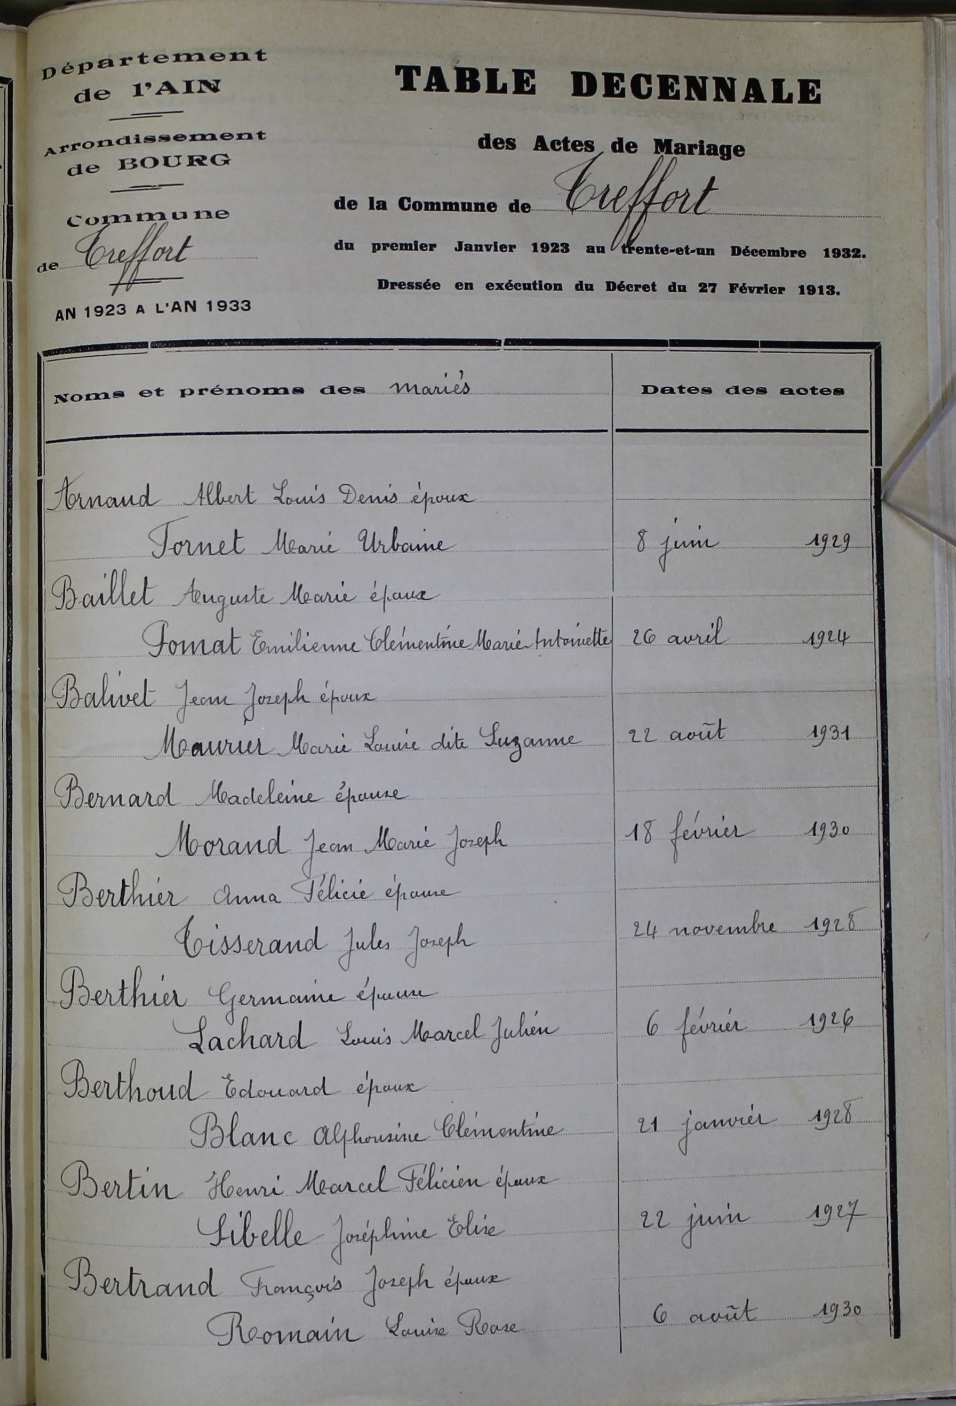 Département
de l'AIN
Arrondissement
de BOURG
Commune
de Treffort
AN 1923 A L'AN 1933
TABLE DECENNALE
des Actes de Mariage
de la Commune de Treffort
du premier Janvier 1923 au trente-et-un Décembre 1932.
Dressée en exécution du Décret du 27 Février 1913.
Noms et prénoms des mariés Dates des actes
Arnaud Albert Louis Denis époux
Fornet Marie Urbaine 8 juin 1929
Baillet Auguste Marie époux
Pomat Emilienne Clémentine Marie Antoinette 26 avril 1924
Balivet Jean Joseph époux
Maurier Marie Louise dite Suzanne 22 août 1931
Bernard Madeleine épouse
Morand Jean Marie Joseph 18 février 1930
Berthier Anna Félicie épouse
Tisserand Jules Joseph 24 novembre 1928
Berthier Germaine épouse
Lachard Louis Marcel Julien 6 février 1926
Berthoud Edouard époux
Blanc Alphonsine Clémentine 21 janvier 1928
Bertin Henri Marcel Félicien époux
Sibelle Joséphine Elise 22 juin 1927
Bertrand François Joseph époux
Romain Louise Rose 6 août 1930